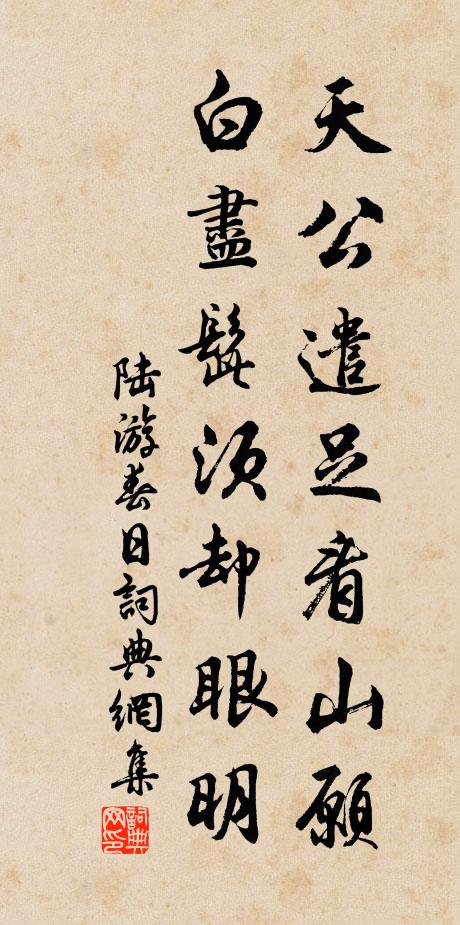 天公遣足看山願
白盡髭須却眼明
陸游春日詞典網集
詞典網印